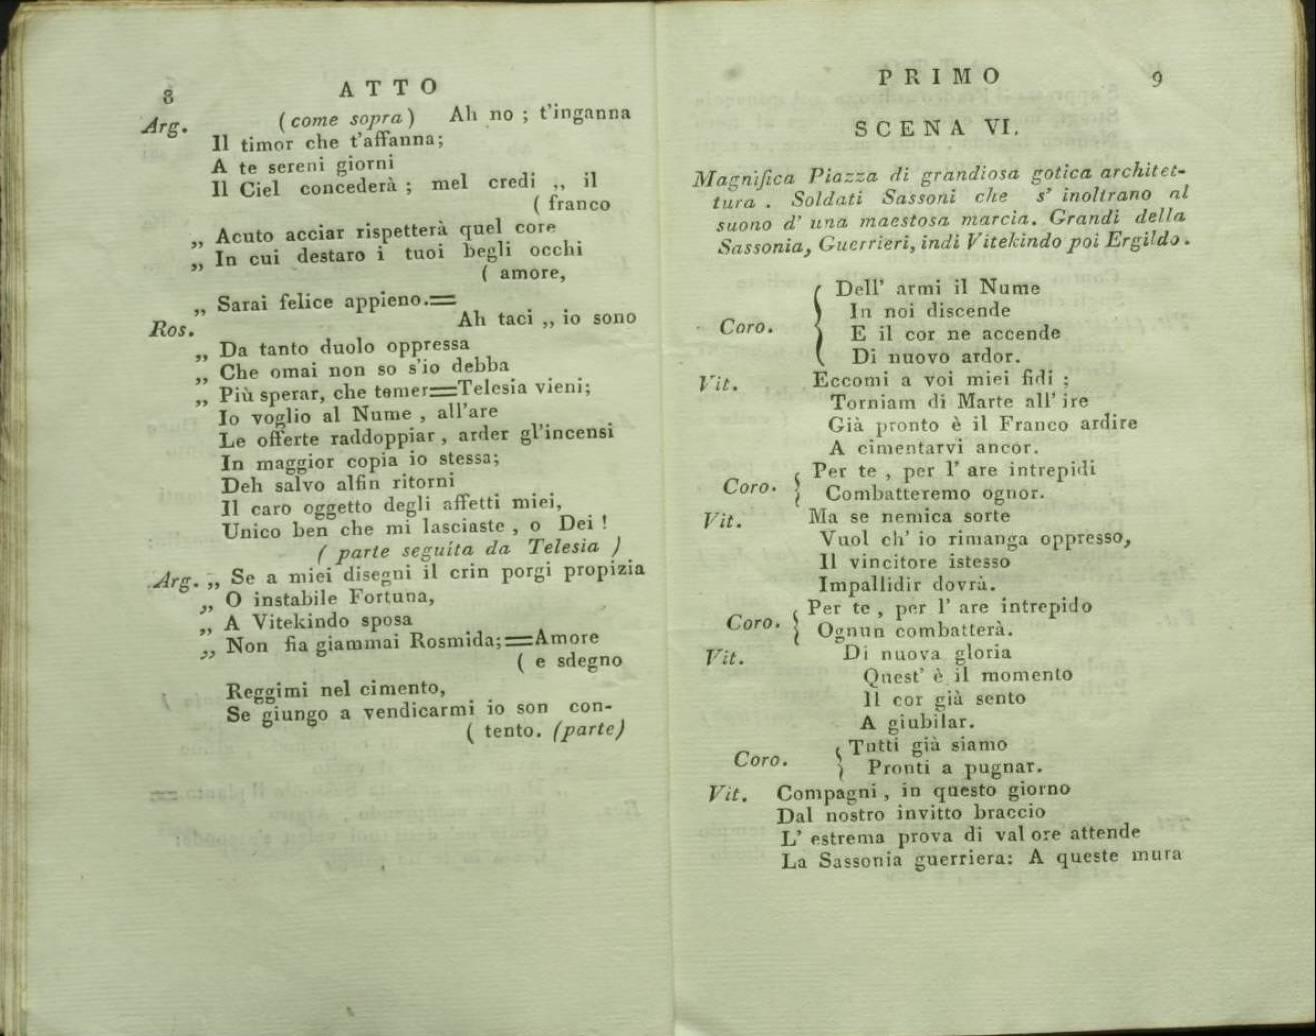 8 ATTO
Arg. (come sopra) Ah no ; t'inganna
Il timor che t'affanna;
A te sereni giorni
Il Ciel concederà ; mel credi ,, il
( franco
,, Acuto acciar rispetterà quel core
,, In cui destaro i tuoi begli occhi
( amore,
,, Sarai felice appieno.==
Ros. Ah taci ,, io sono
,, Da tanto duolo oppressa
,, Che omai non so s'io debba
,, Più sperar, che temer==Telesia vieni;
Io voglio al Nume , all'are
Le offerte raddoppiar , arder gl'incensi
In maggior copia io stessa;
Deh salvo alfin ritorni
Il caro oggetto degli affetti miei,
Unico ben che mi lasciaste , o Dei !
( parte seguita da Telesia )
Arg. ,, Se a miei disegni il crin porgi propizia
,, O instabile Fortuna,
,, A Vitekindo sposa
,, Non fia giammai Rosmida;==Amore
( e sdegno
Reggimi nel cimento,
Se giungo a vendicarmi io son con-
( tento. (parte)
PRIMO 9
SCENA VI.
Magnifica Piazza di grandiosa gotica architet-
tura . Soldati Sassoni che s' inoltrano al
suono d' una maestosa marcia. Grandi della
Sassonia, Guerrieri, indi Vitekindo poi Ergildo.
Dell' armi il Nume
In noi discende
Coro. { E il cor ne accende
Di nuovo ardor.
Vit. Eccomi a voi miei fidi ;
Torniam di Marte all' ire
Già pronto è il Franco ardire
A cimentarvi ancor.
Coro. { Per te , per l' are intrepidi
Combatteremo ognor.
Vit. Ma se nemica sorte
Vuol ch' io rimanga oppresso,
Il vincitore istesso
Impallidir dovrà.
Coro. { Per te , per l' are intrepido
Ognun combatterà.
Vit. Di nuova gloria
Quest' è il momento
Il cor già sento
A giubilar.
Coro. { Tutti già siamo
Pronti a pugnar.
Vit. Compagni , in questo giorno
Dal nostro invitto braccio
L' estrema prova di val ore attende
La Sassonia guerriera: A queste mura